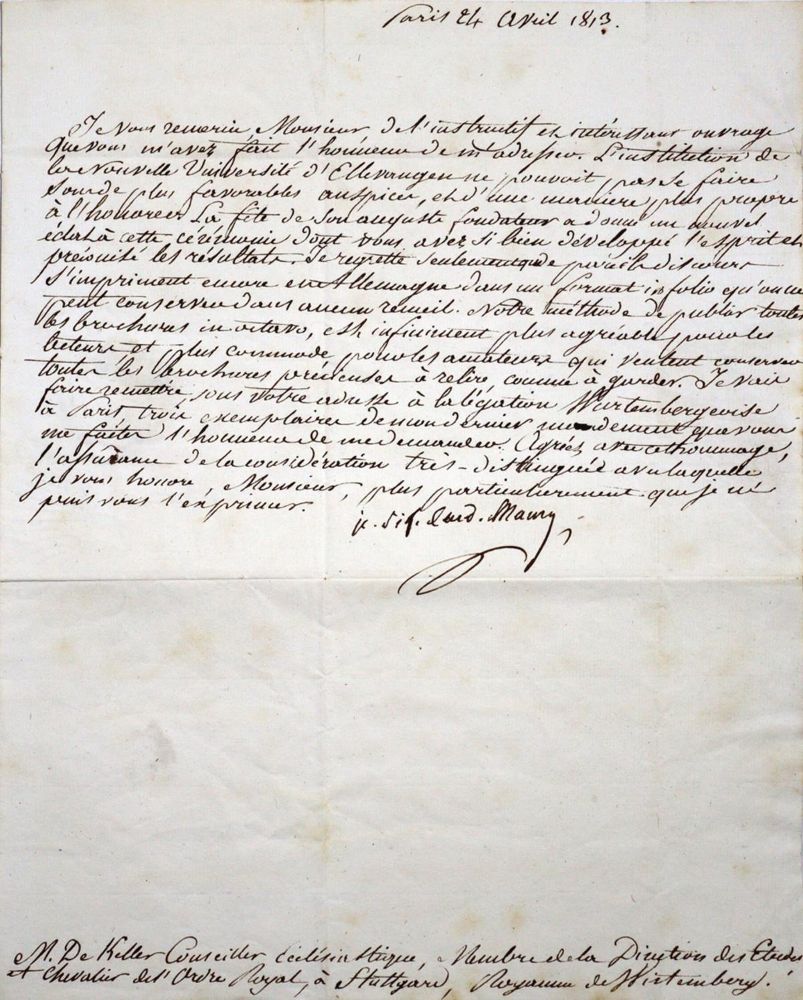 Paris 24 Avril 1813.
Je vous remercie, Monsieur, de l'instructif et intéressant ouvrage
que vous m'avez fait l'honneur de m'adresser. L'institution de
la nouvelle Université d'Ellevangen ne pouvoit pas se faire
sous de plus favorables auspices, et d'une maniere plus propre
à l'honorer. La fête de son auguste fondateur a donné un nouvel
éclat à cette cérémonie dont vous avez si bien développé l'esprit et
présenté les résultats. Je regrette seulement que de pareils discours
s'impriment encore en Allemagne dans un format in folio qu'on ne
peut conserver dans aucun recueil. Notre méthode de publier toutes
les brochures in octavo, est infiniment plus agréable pour les
lecteurs et plus commode pour les amateurs qui veulent conserver
toutes les brochures précieuses à relire, comme à garder. Je vais
faire remettre, sous votre adresse à la légation Wurtembergeoise
à Paris trois exemplaires de mon dernier mandement que vous
me faites l'honneur de me demander. Agréez avec cet hommage,
l'assurance de la considération très-distinguée avec laquelle
je vous honore, Monsieur, plus particulierement que je ne
puis vous l'exprimer.
j. Sif. Card. Maury
M. De Keller Conseiller Ecclésiastique, Membre de la Direction des Etudes
et Chevalier de l'Ordre Royal, à Stuttgard, Royaume de Wirtemberg.